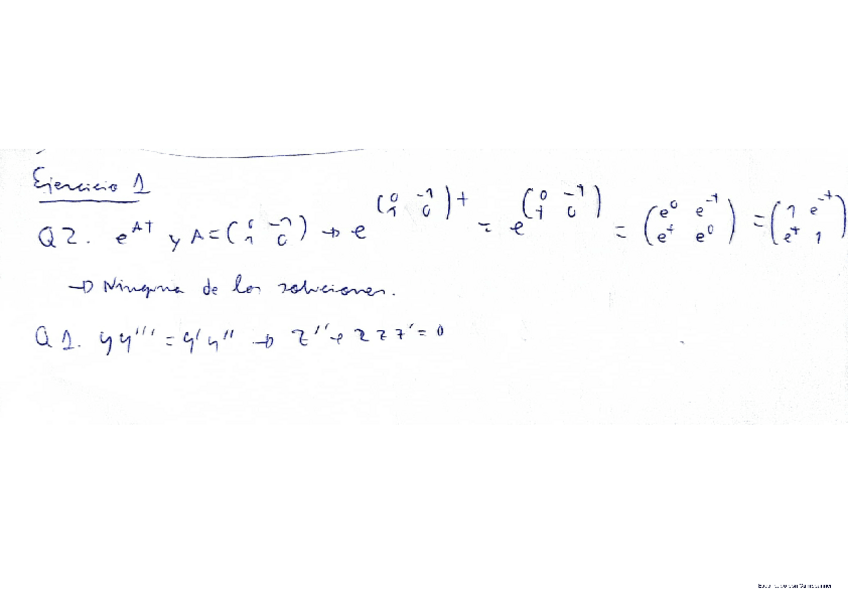 Ejercicio 1
Q2. e^{At} y A = (0 -1; 1 0) → e^{(0 -1; 1 0)t} = e^{(0 -t; t 0)} = (e^0 e^{-t}; e^t e^0) = (1 e^{-t}; e^t 1)
→ Ninguna de las soluciones.
Q1. yy''' = y'y'' → z'' + 2zz' = 0